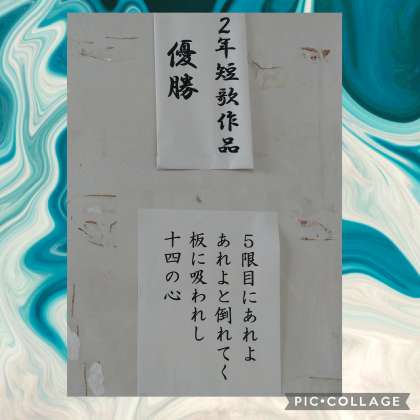 2年短歌作品
優勝
5限目にあれよ
あれよと倒れてく
板に吸われし
十四の心
PIC•COLLAGE